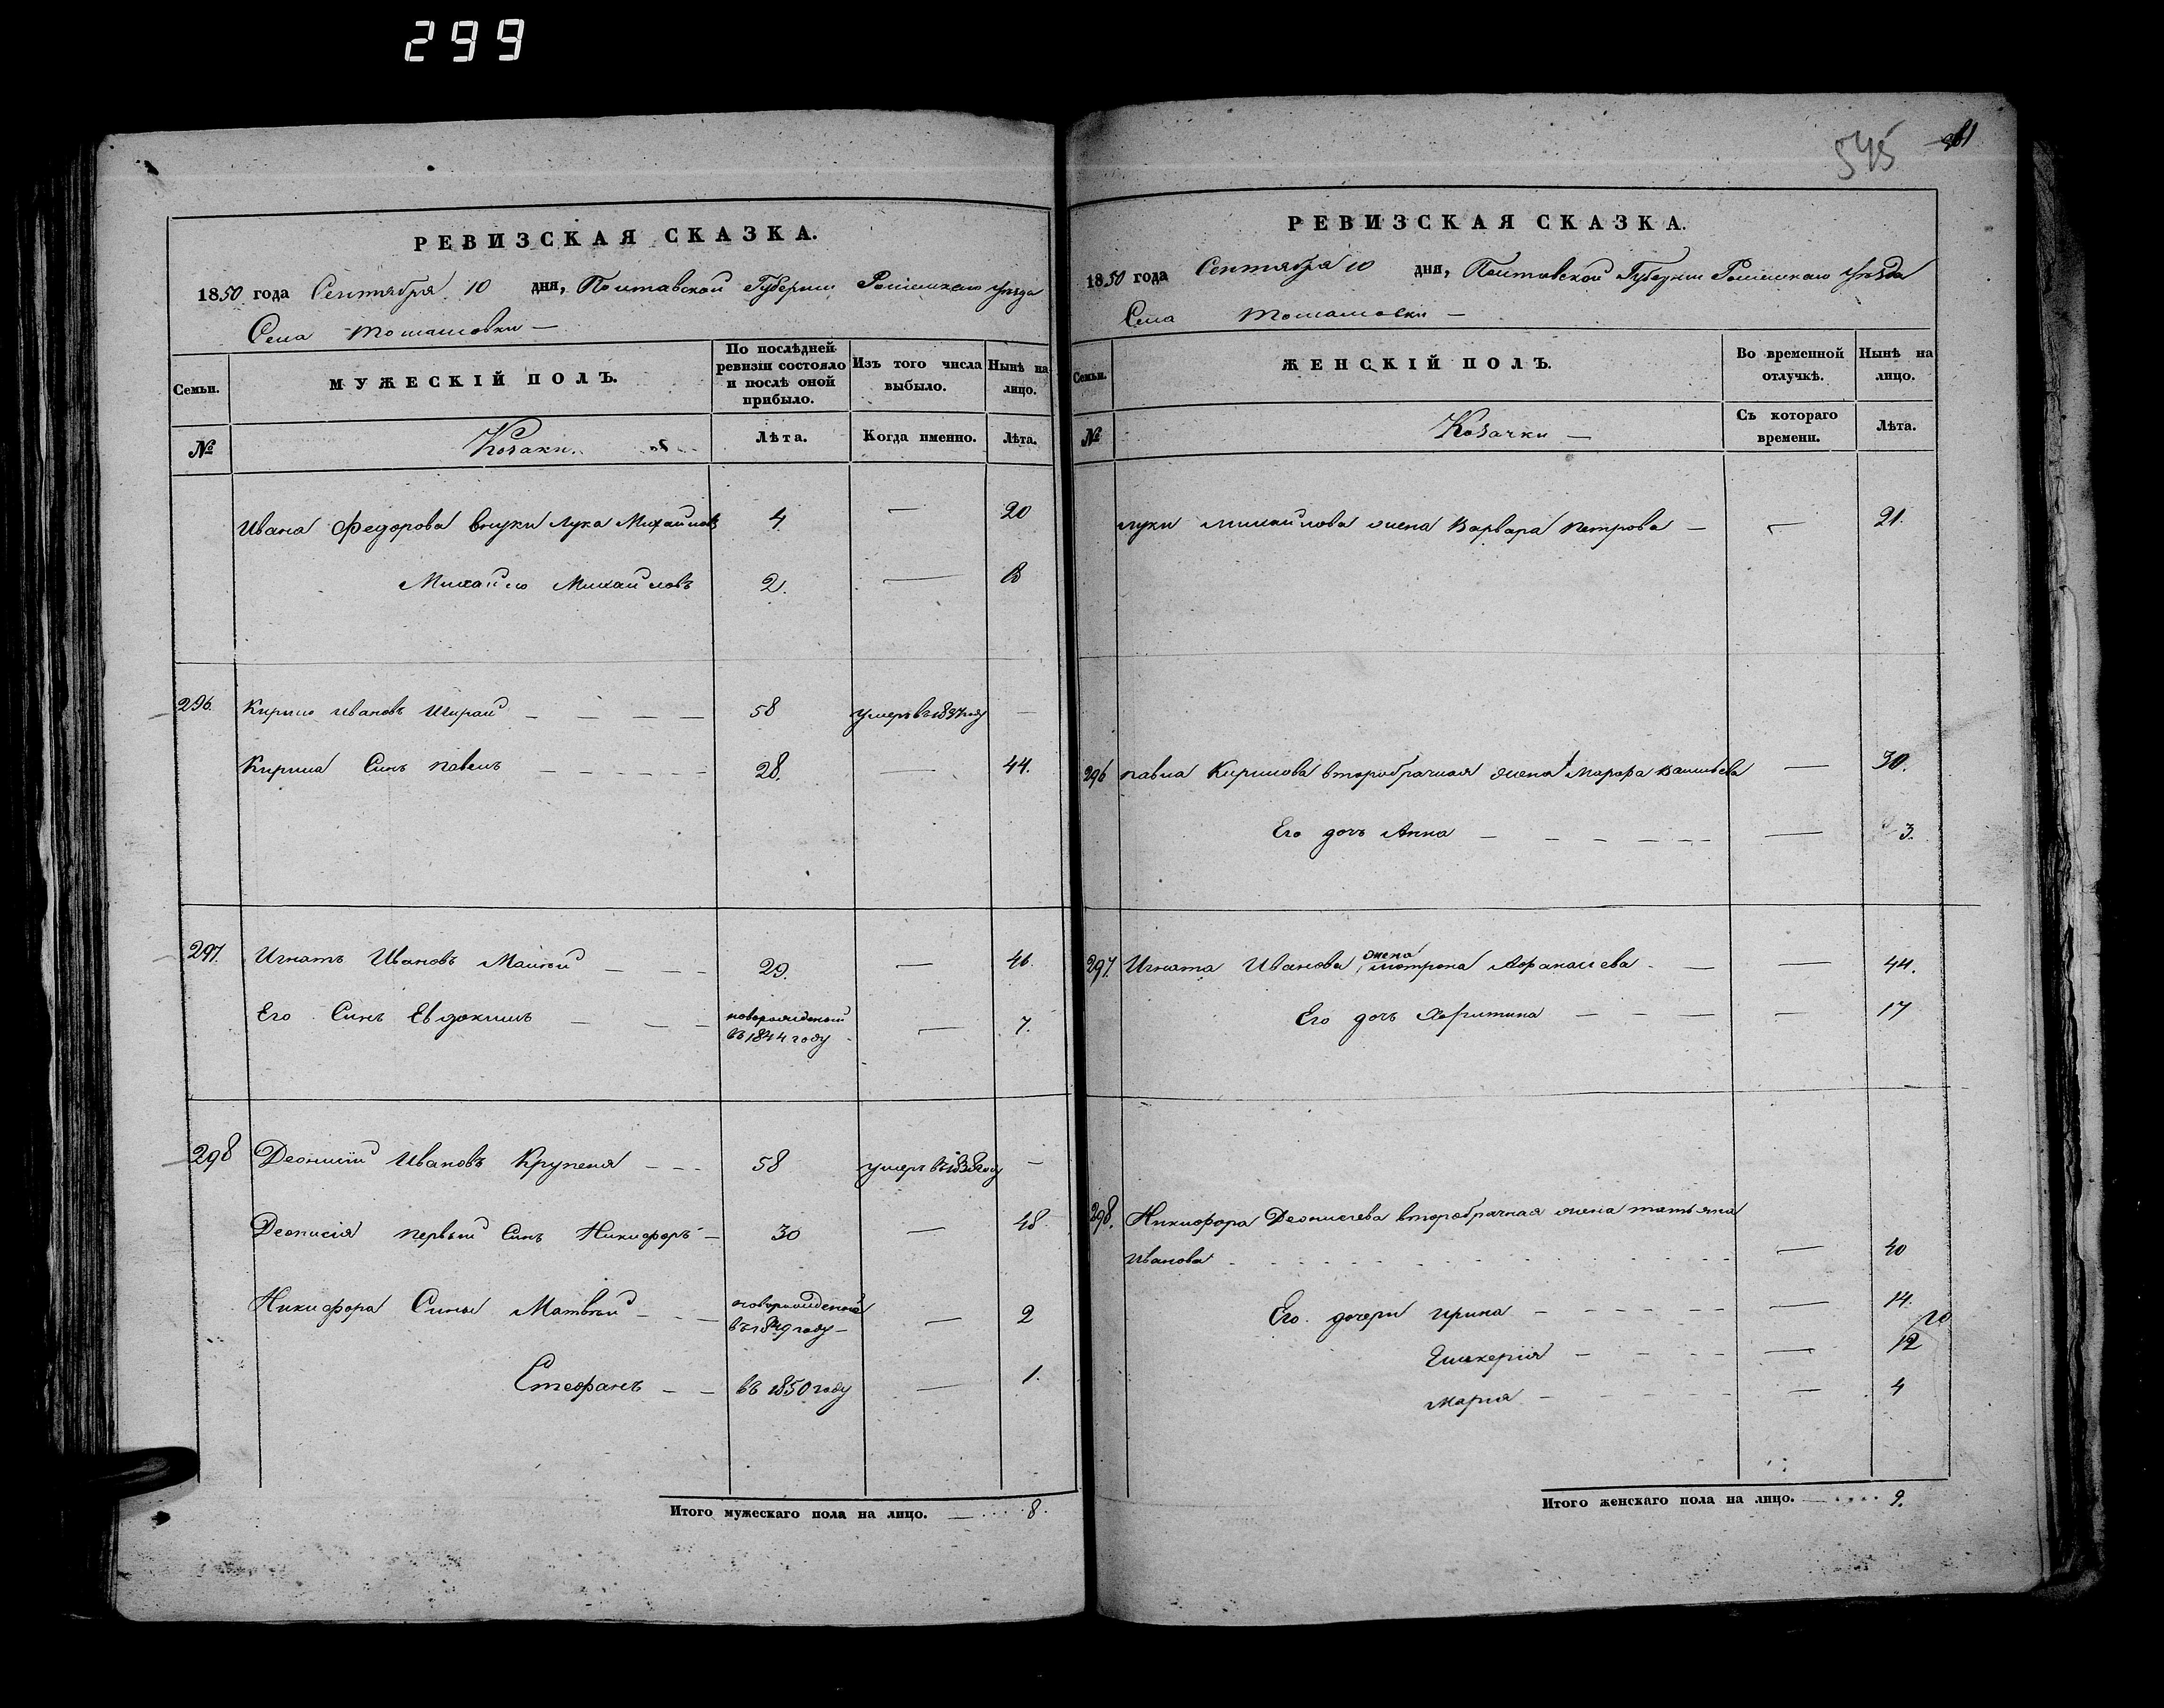 299
РЕВИЗСКАЯ СКАЗКА.
1850 года Сентября 10 дня, Полтавской Губернии Роменскаго уѣзда
Села Томашовки —
Семьи.
МУЖЕСКІЙ ПОЛЪ.
По послѣдней ревизіи состояло и послѣ оной прибыло.
Изъ того числа выбыло.
Нынѣ на лицо.
№
Козаки.
Лѣта.
Когда именно.
Лѣта.
Ивана Федорова внуки Лука Михайловъ 4 — 20
Михайло Михайловъ 2. —
296. Кирило Ивановъ Шкрай — — — — 58 умеръ въ 1837 году —
Кирила Синъ Павелъ — — — — — 28. — 44.
297. Игнатъ Ивановъ — — — 29. — 46.
Его Синъ Евдокимъ — — — новорожденый — 7.
въ 1844 году
298 Деонисій Ивановъ Крупеня — — — 58 умеръ въ 1838 году —
Деонисія первый Синъ Никифоръ — 30 — 48.
Никифора Сины Матвѣй — — — новорожденые — 2
въ 1849 году —
Стефанъ — — въ 1850 году — 1.
Итого мужескаго пола на лицо. — . . . . 8.
545
РЕВИЗСКАЯ СКАЗКА.
1850 года Сентября 10 дня, Полтавской Губернии Роменскаго уѣзда
Села Томашовки —
Семьи.
ЖЕНСКІЙ ПОЛЪ.
Во временной отлучкѣ.
Нынѣ на лицо.
№
Козачки —
Съ котораго времени.
Лѣта.
Луки Михайлова жена Варвара Петрова — — 21.
296 Павла Кирилова второбрачная жена Марфа Васильева — 30.
Его дочъ Анна — — — — — — 3.
297. Игната Иванова жена Мотрона Афанасіева — — — 44.
Его дочъ Харитина — — — — 17
298. Никифора Деонисіева второбрачная жена Татьяна
Иванова — 40
Его дочери Ирина — — — — — — 14.
Гликерія — — — — — 12
10
Марія — — — — — — 4
Итого женскаго пола на лицо. — . . . . 9.